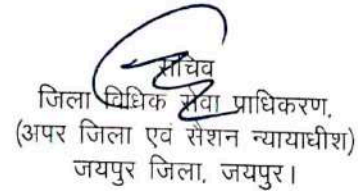 सचिव
जिला विधिक सेवा प्राधिकरण,
(अपर जिला एवं सैशन न्यायाधीश)
जयपुर जिला, जयपुर।